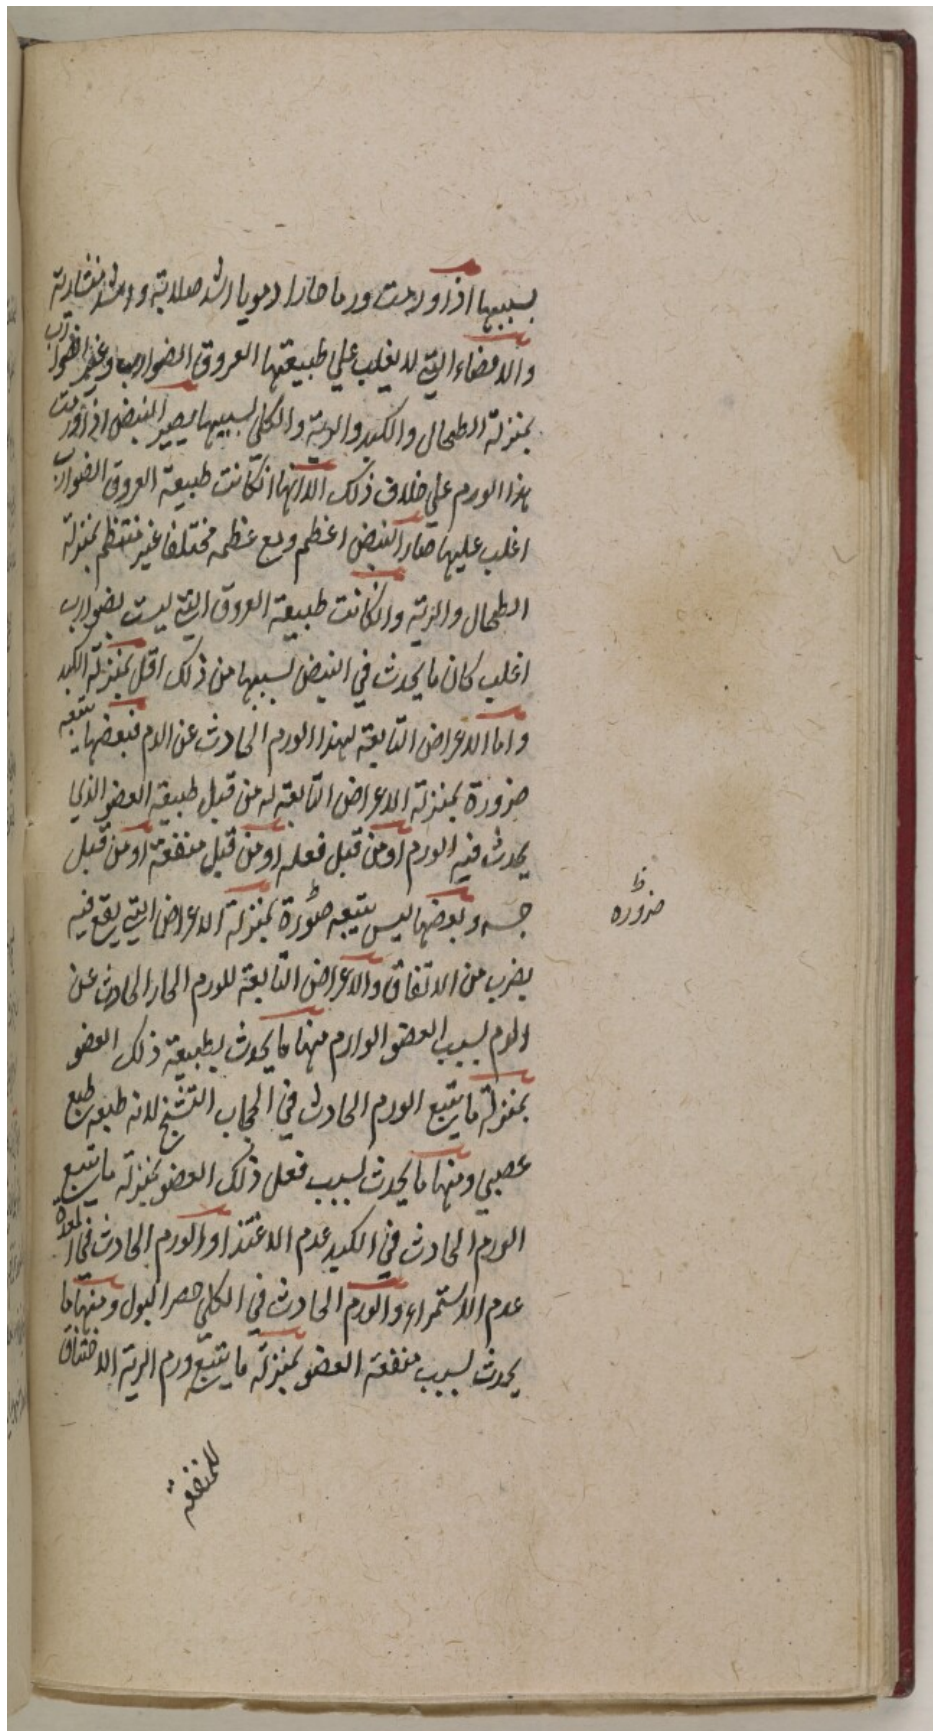 بسببها اذا ورمت ورما حارا دمويا اشد صلابة واشد منشارية
والاعضاء التي لا يغلب علي طبيعتها العروق الضوارب وغير الضوارب
بمنزلة الطحال والكبد والرية والكلي بسببها يصير النبض اذا ورمت
هذا الورم علي خلاف ذلك الا انها ان كانت طبيعة العروق الضوارب
اغلب عليها صار النبض اعظم ومع عظمه مختلفا غير منتظم بمنزلة
الطحال والرية وان كانت طبيعة العروق التي ليست بضوارب
اغلب كان ما يحدث في النبض بسببها من ذلك اقل بمنزلة الكبد
واما الاعراض التابعة لهذا الورم الحادث عن الدم فبعضها يتبعه
ضرورة بمنزلة الاعراض التابعة له من قبل طبيعة العضو الذي
يحدث فيه الورم او من قبل فعله او من قبل منفعة او من قبل
حسه وبعضها ليس يتبعه صورة بمنزلة الاعراض التي يقع فيه
بضرب من الاتفاق والاعراض التابعة للورم الحار الحادث عن
الدم بسبب العضو الوارم منها ما يحدث بطبيعة ذلك العضو
بمنزلة ما يتبع الورم الحادث في الحجاب التشنج لانه طبعه طبع
عصبي ومنها ما يحدث بسبب فعل ذلك العضو بمنزلة ما يتبع
الورم الحادث في الكبد عدم الاغتذا والورم الحادث في المعدة
عدم الاستمراء والورم الحادث في الكلي حصر البول ومنها ما
يحدث بسبب منفعة العضو بمنزلة ما يتبع ورم الرية الاختناق
للمنفعة
ظ
ضرورة